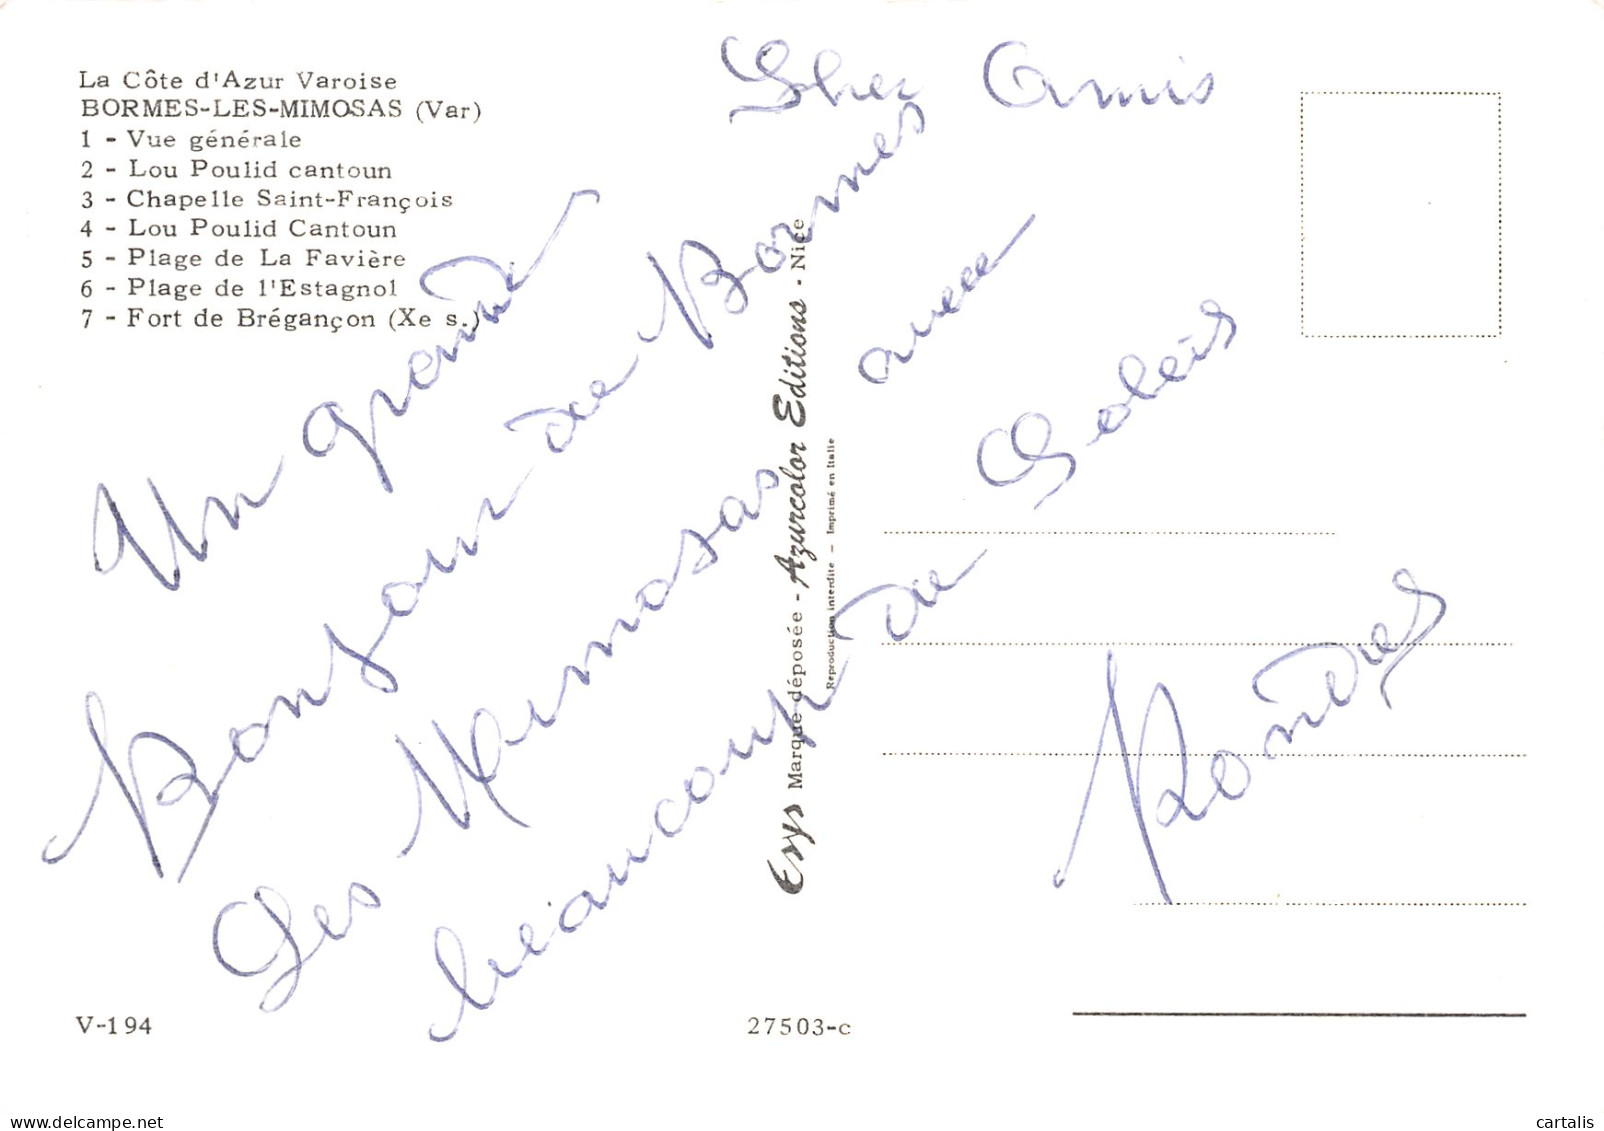 La Côte d'Azur Varoise
BORMES-LES-MIMOSAS (Var)
1 - Vue générale
2 - Lou Poulid cantoun
3 - Chapelle Saint-François
4 - Lou Poulid Cantoun
5 - Plage de La Favière
6 - Plage de l'Estagnol
7 - Fort de Brégançon (Xe s.)
Cher Amis
Un grand
Bonjour de Bormes
Les Mimosas avec
beaucoup de Soleis
Esys Marque déposée - Azurcolor Editions - Nice
Reproduction interdite - Imprimé en Italie
V-194
27503-c
delcampe.net
cartalis